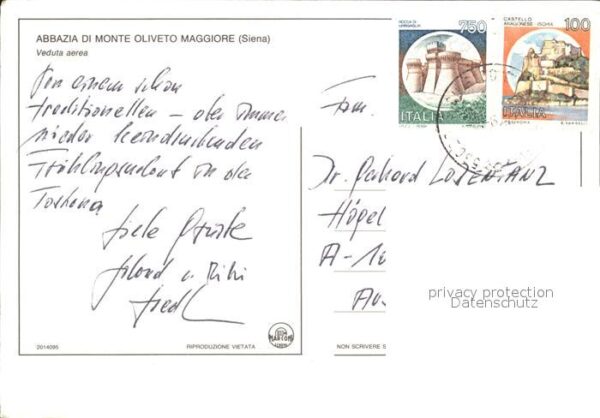 ABBAZIA DI MONTE OLIVETO MAGGIORE (Siena)
Veduta aerea
Von einem schon
traditionellen – aber immer
wieder beeindruckenden
Frühlingsurlaub in der
Toskana
viele Grüße
2014095
RIPRODUZIONE VIETATA
NON SCRIVERE S
ROCCA DI URBISAGLIA
750
ITALIA
CASTELLO
ARAGONESE - ISCHIA
100
ITALIA
Fam.
Dr. Gerhard
A-
privacy protection
Datenschutz